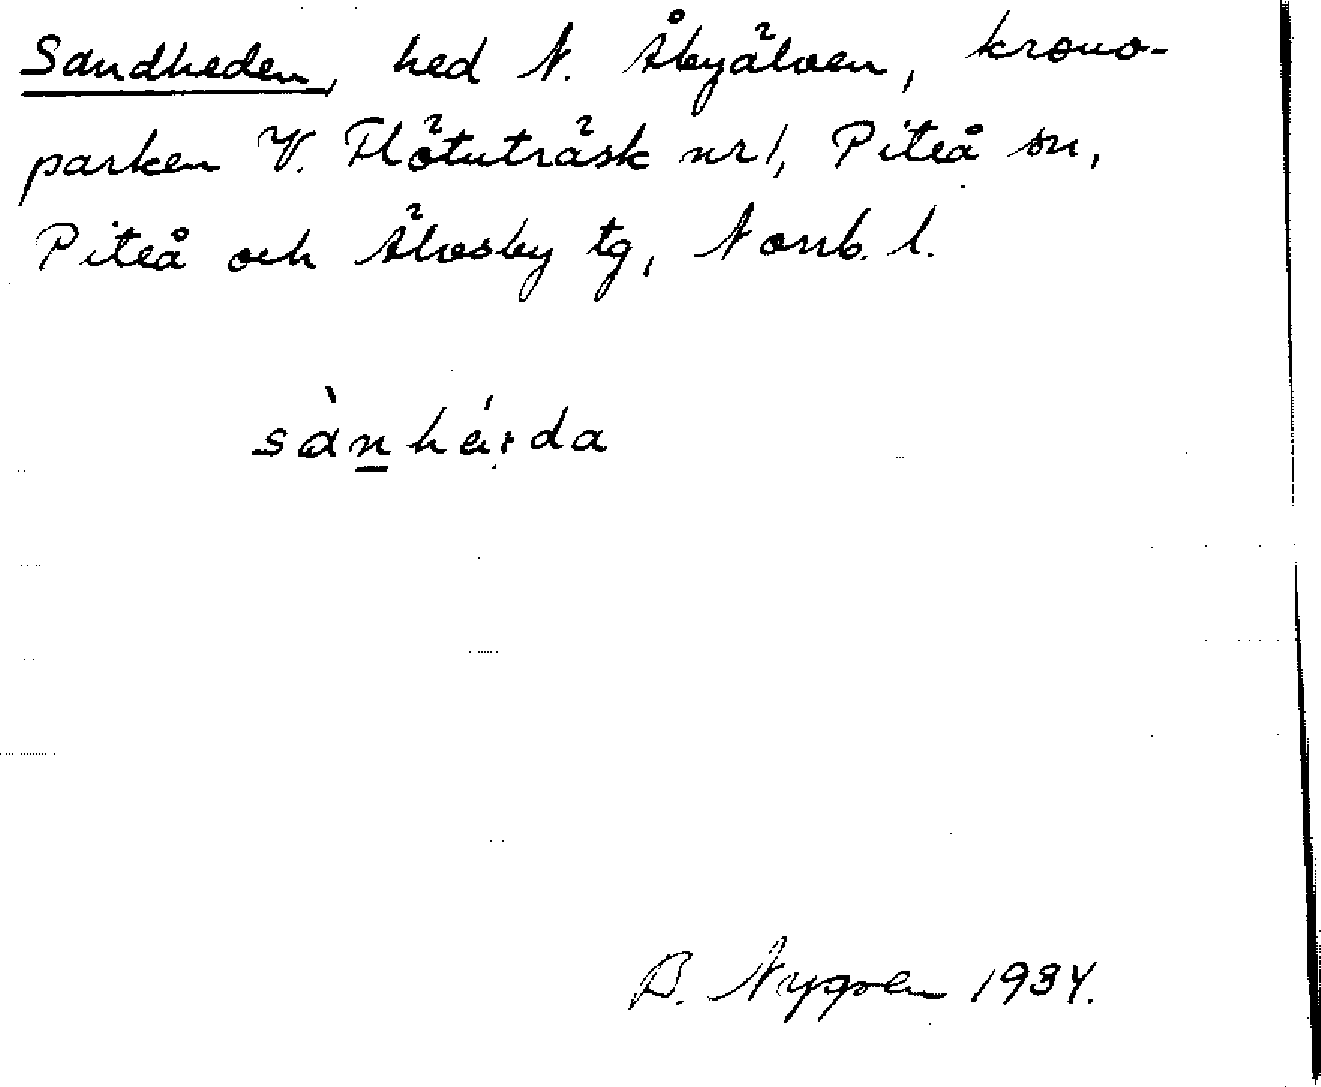 Sandheden, hed N. Åbyälven, krono-
parken V. Flötuträsk nr 1, Piteå sn,
Piteå och Älvsby tg, Norrb. l.
sànhé:da
B. Nygren 1934.